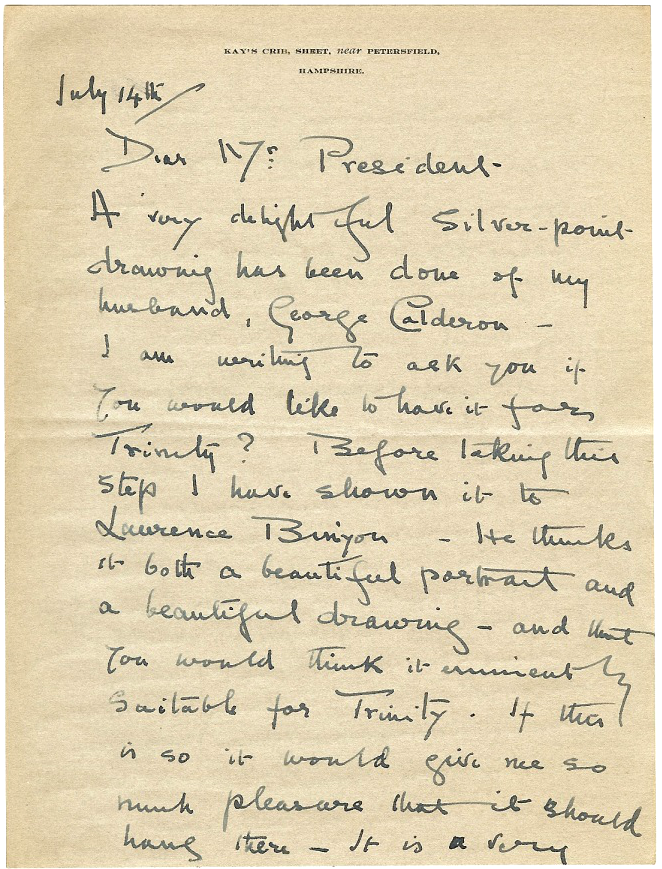 KAY'S CRIB, SHEET, near PETERSFIELD,
HAMPSHIRE.
July 14th
Dear Mr. President
A very delightful Silver-point
drawing has been done of my
husband, George Calderon –
I am writing to ask you if
you would like to have it for
Trinity? Before taking this
step I have shown it to
Laurence Binyon – He thinks
it both a beautiful portrait and
a beautiful drawing – and that
you would think it eminently
suitable for Trinity. If this
is so it would give me so
much pleasure that it should
hang there – It is a very